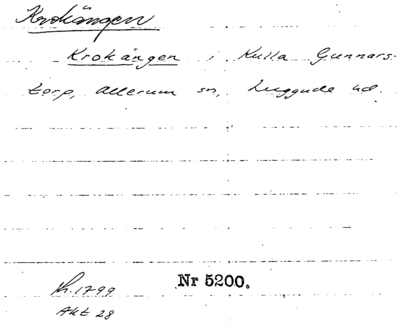 Krokängen
Krokängen i Kulla Gunnars-
torp, Allerum sn, Luggude hd.
Nr 5200.
Kr. 1799
Akt 28